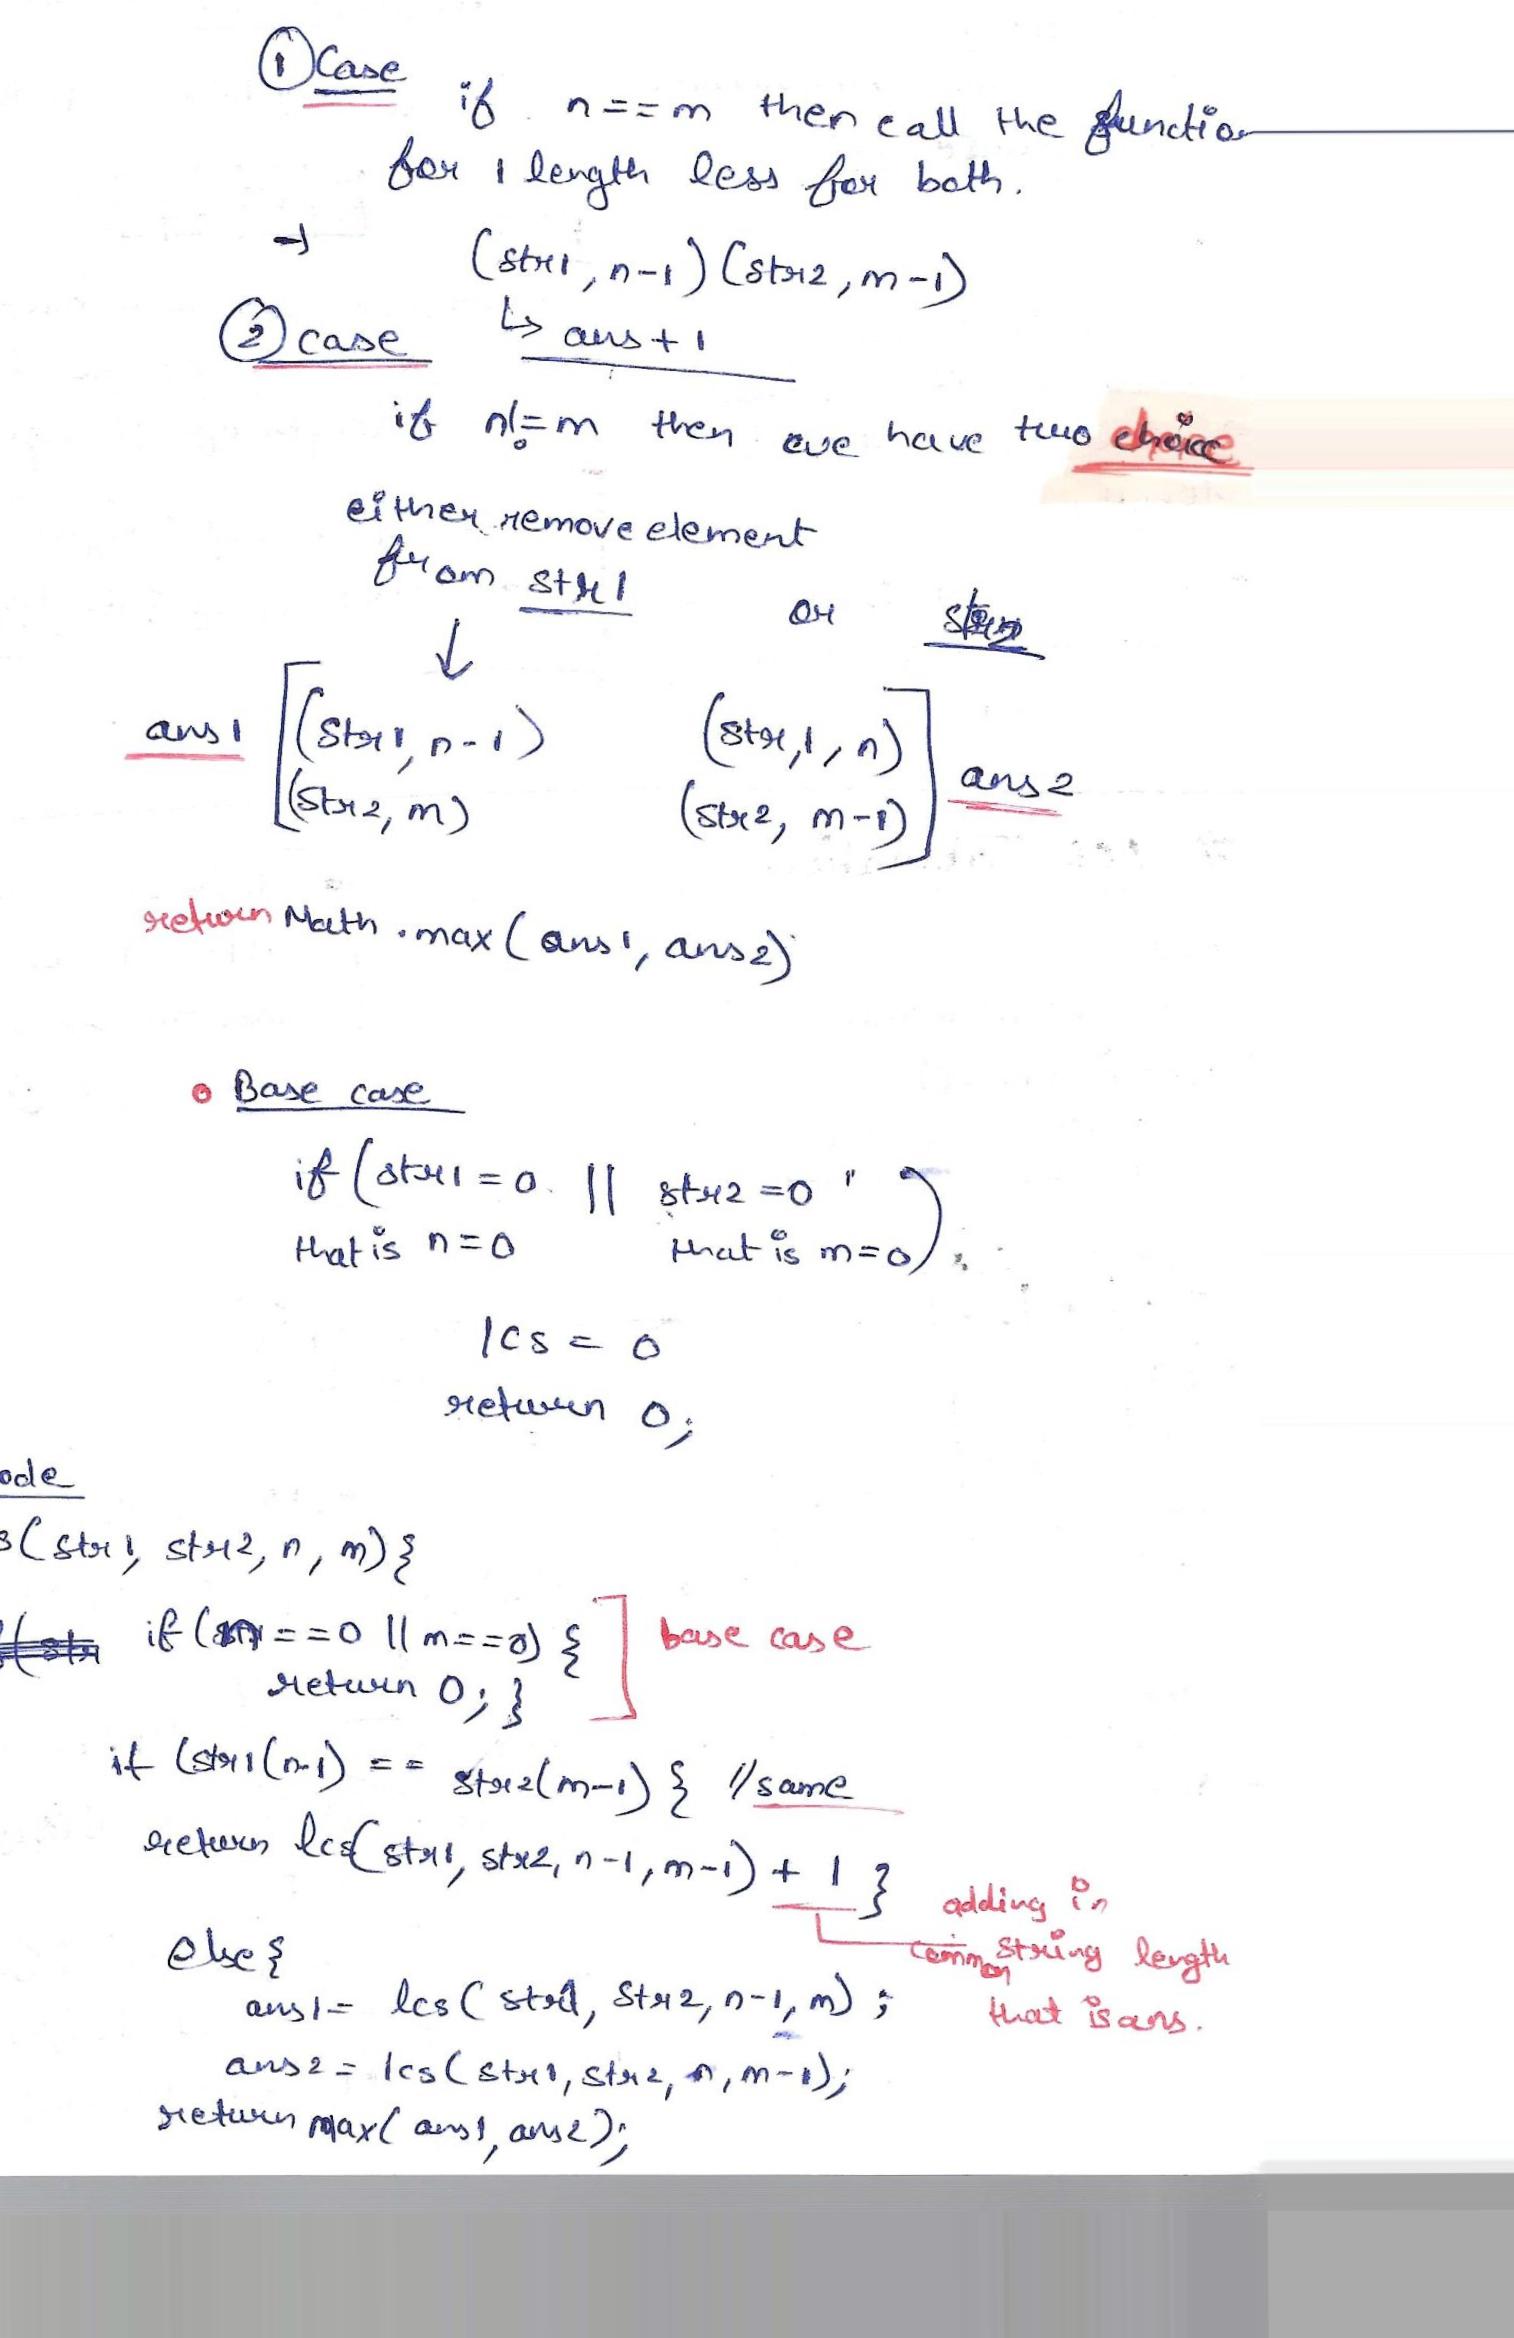 ① Case
if n==m then call the function
for 1 length less for both.
→ (str1, n-1) (str2, m-1)
↳ ans+1
② case
if n!=m then we have two choice
either remove element
from str1 or str2
↓
ans1 [(str1, n-1) (str,1, n)] ans2
(str2, m) (str2, m-1)
return Math.max(ans1, ans2)
Base case
if (str1=0 || str2=0 " )
that is n=0 that is m=0
lcs = 0
return 0;
ode
s(str1, str2, n, m){
if (n==0 || m==0) { ] base case
return 0; }
if (str1(n-1) == str2(m-1) { //same
return lcs(str1, str2, n-1, m-1) + 1 }
adding in
common string length
that is ans.
else {
ans1= lcs( str1, str2, n-1, m) ;
ans2 = lcs( str1, str2, n, m-1);
return max( ans1, ans2);